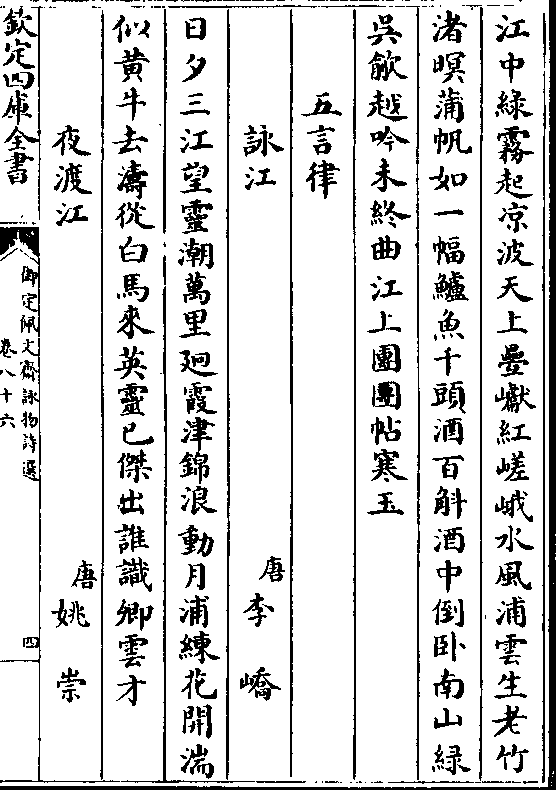 江中綠霧起涼波天上疊巘紅嵯峨水風浦雲生老竹
渚暝蒲帆如一幅鱸魚千頭酒百斛酒中倒卧南山綠
吳歈越吟未終曲江上團團帖寒玉
五言律
詠江 唐 李嶠
日夕三江望靈潮萬里迴霞津錦浪動月浦練花開湍
似黃牛去濤從白馬來英靈已傑出誰識卿雲才
夜渡江 唐 姚崇
欽定四庫全書
御定佩文齋詠物詩選
卷八十六
四